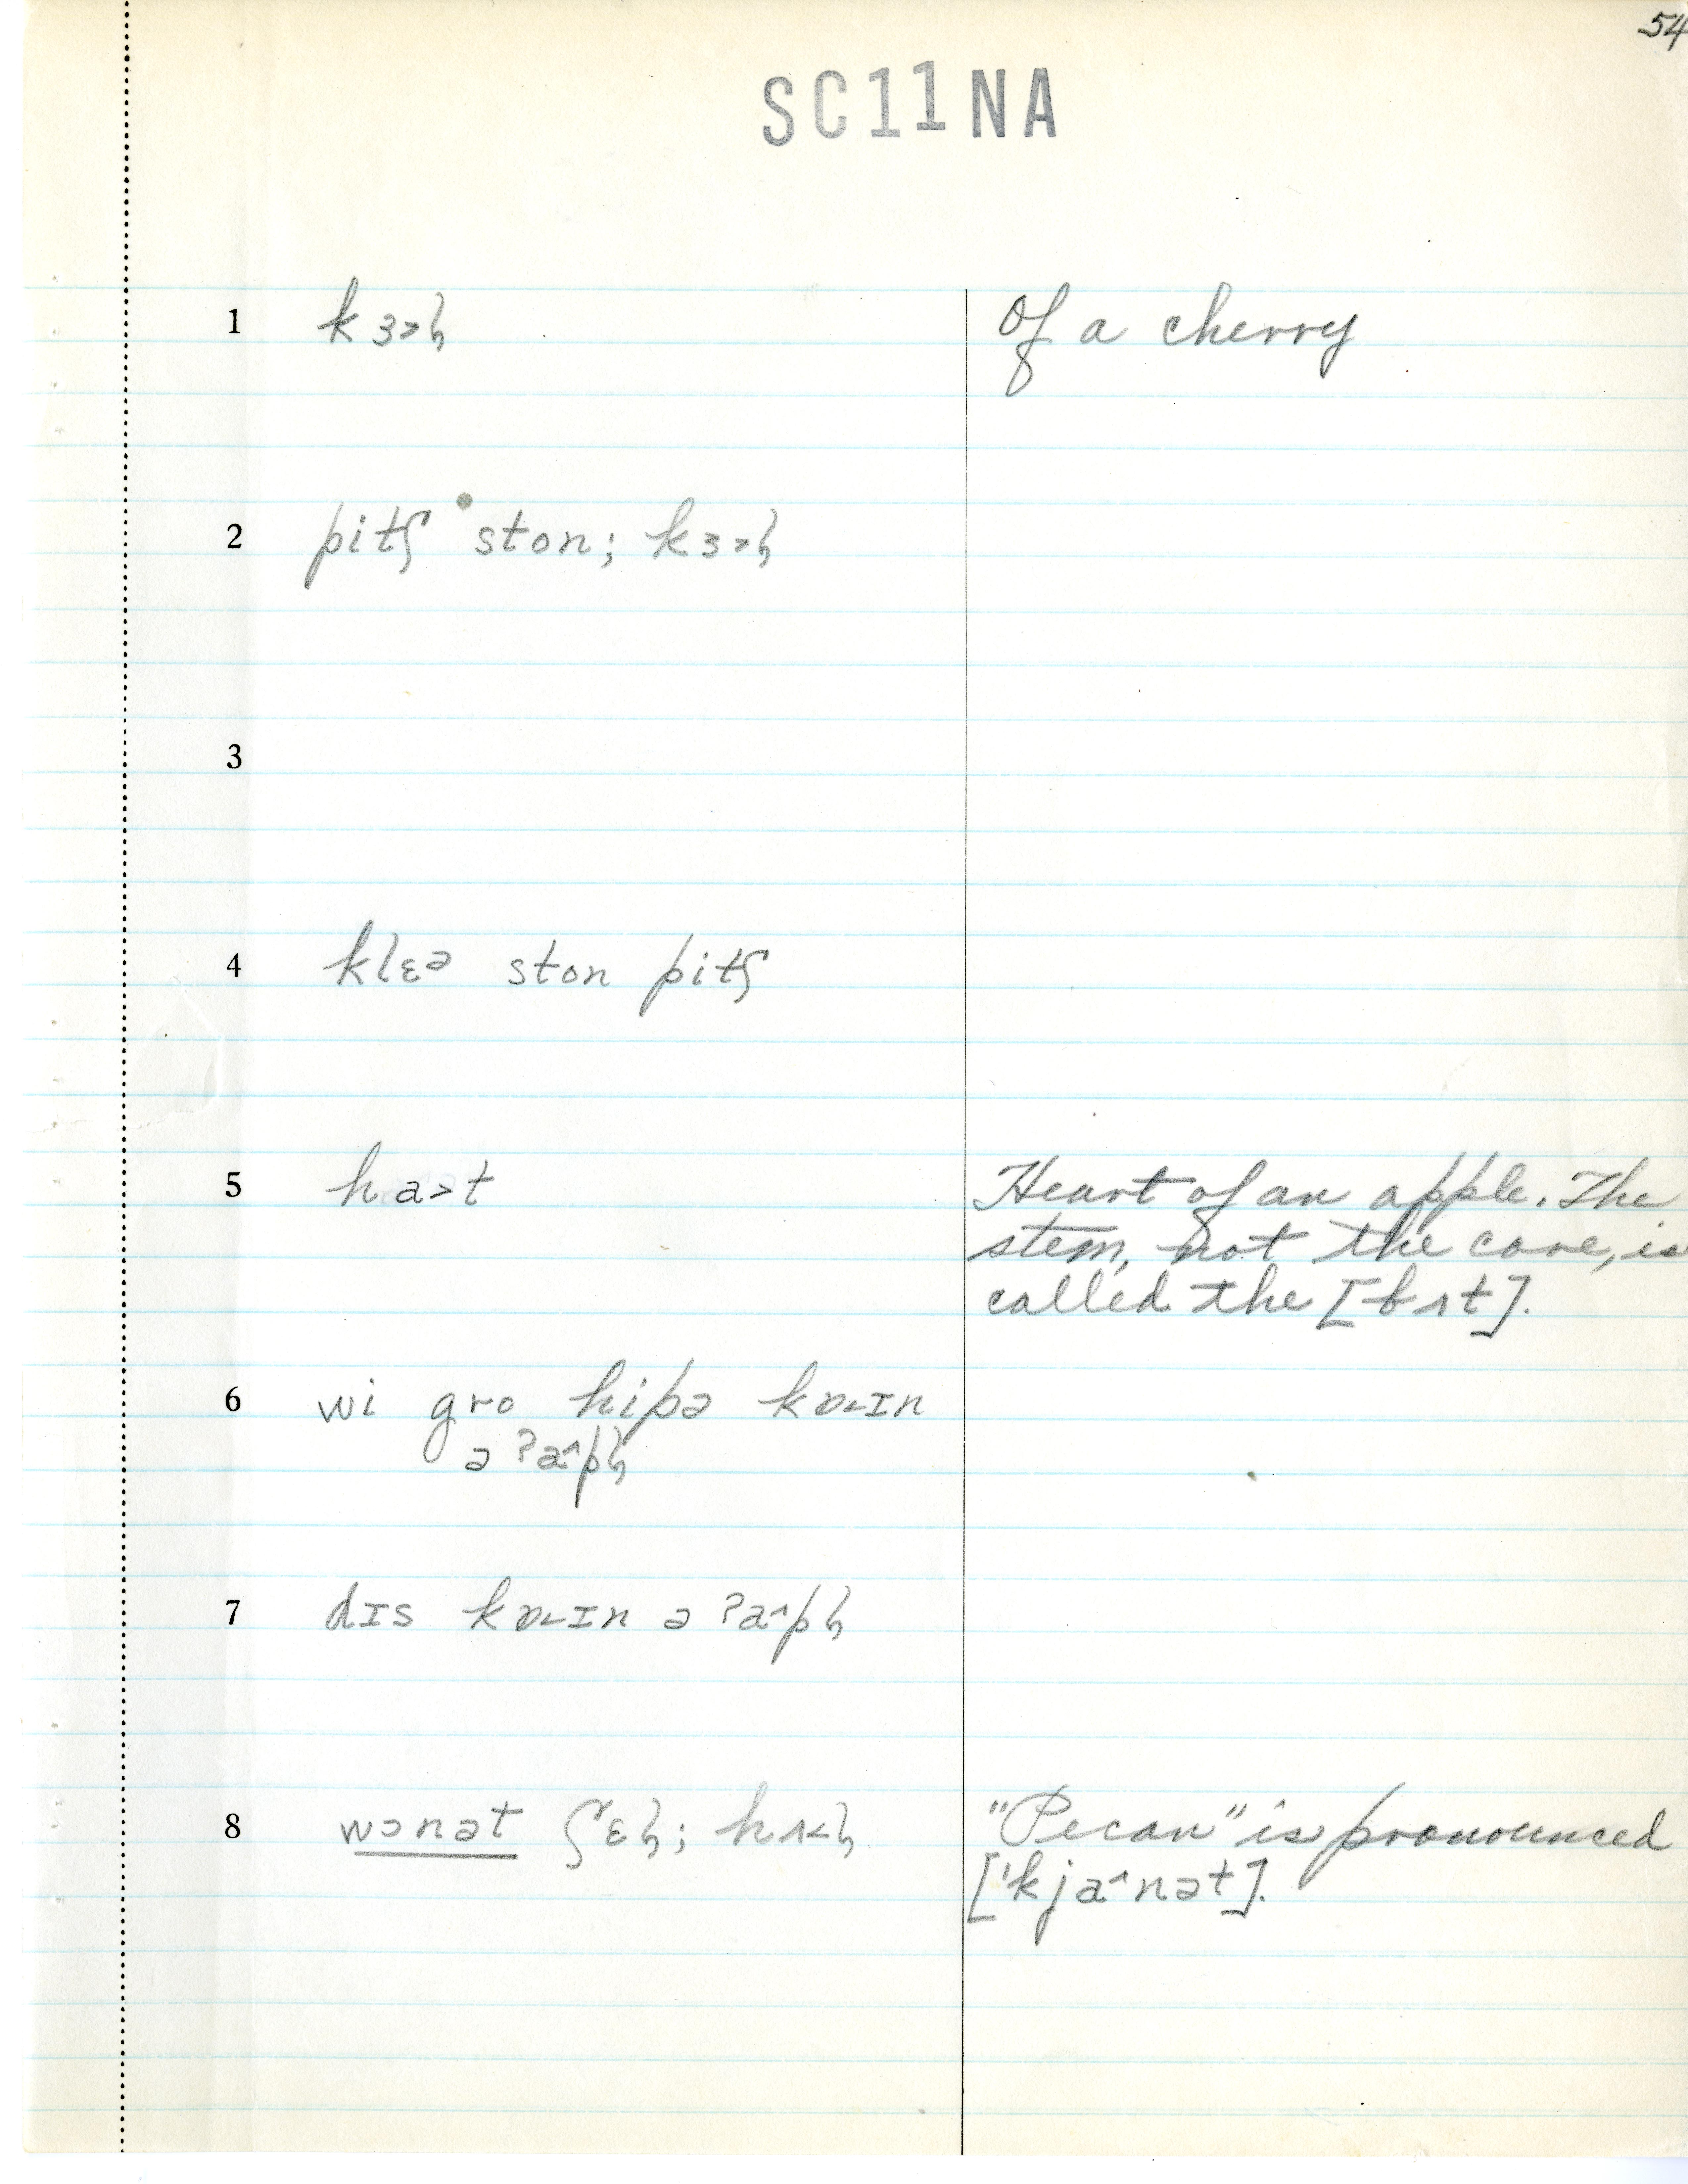 54
SC11NA
1 kɜ˃ɫ̩ Of a cherry
2 pitʃ ston; kɜ˃ɫ̩
3
4 klɛə ston pitʃ
5 ha˃t Heart of an apple. The
stem, not the core, is
called the [bʌt].
6 wi gro hipə kɒ˞ɪn
ə ʔa˄pɫ̩
7 dɪs kɒ˞ɪn ə ʔa˄pɫ̩
8 wɔnət ʃɛɫ̩; hʌ˂ɫ̩ "Pecan" is pronounced
['kja˄nət].